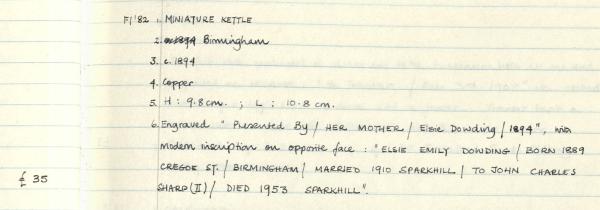 F1'82 1. MINIATURE KETTLE
2. c.1894 Birmingham
3. c.1894
4. Copper
5. H : 9.8cm. ; L : 10.8 cm.
6. Engraved "Presented By / HER MOTHER / Elsie Dowding / 1894", with
modern inscription on opposite face : "ELSIE EMILY DOWDING / BORN 1889
CREGOE ST. / BIRMINGHAM / MARRIED 1910 SPARKHILL / TO JOHN CHARLES
£ 35 SHARP (II) / DIED 1953 SPARKHILL".